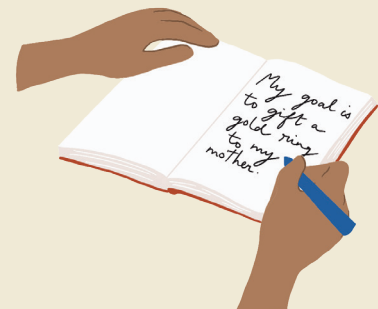 My goal is
to gift a
gold ring
to my
mother.